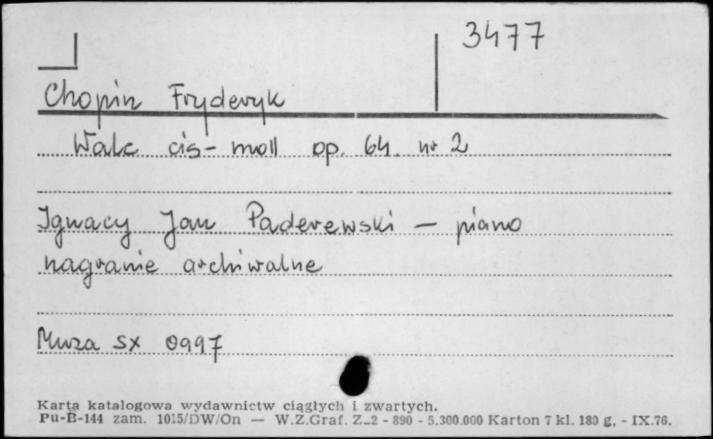 3477
Chopin Fryderyk
Walc cis-moll op. 64. nr 2
Ignacy Jan Paderewski – piano
nagranie archiwalne
Muza SX 0997
Karta katalogowa wydawnictw ciągłych i zwartych.
Pu-B-144 zam. 1015/DW/On — W.Z.Graf. Z-2 - 890 - 5.300.000 Karton 7 kl. 180 g, - IX.76.